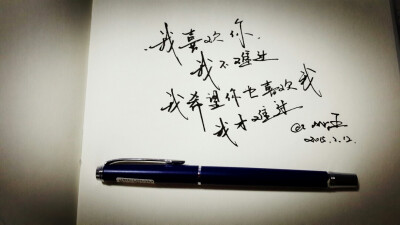 我喜欢你
我不难过
我希望你也喜欢我
我才难过